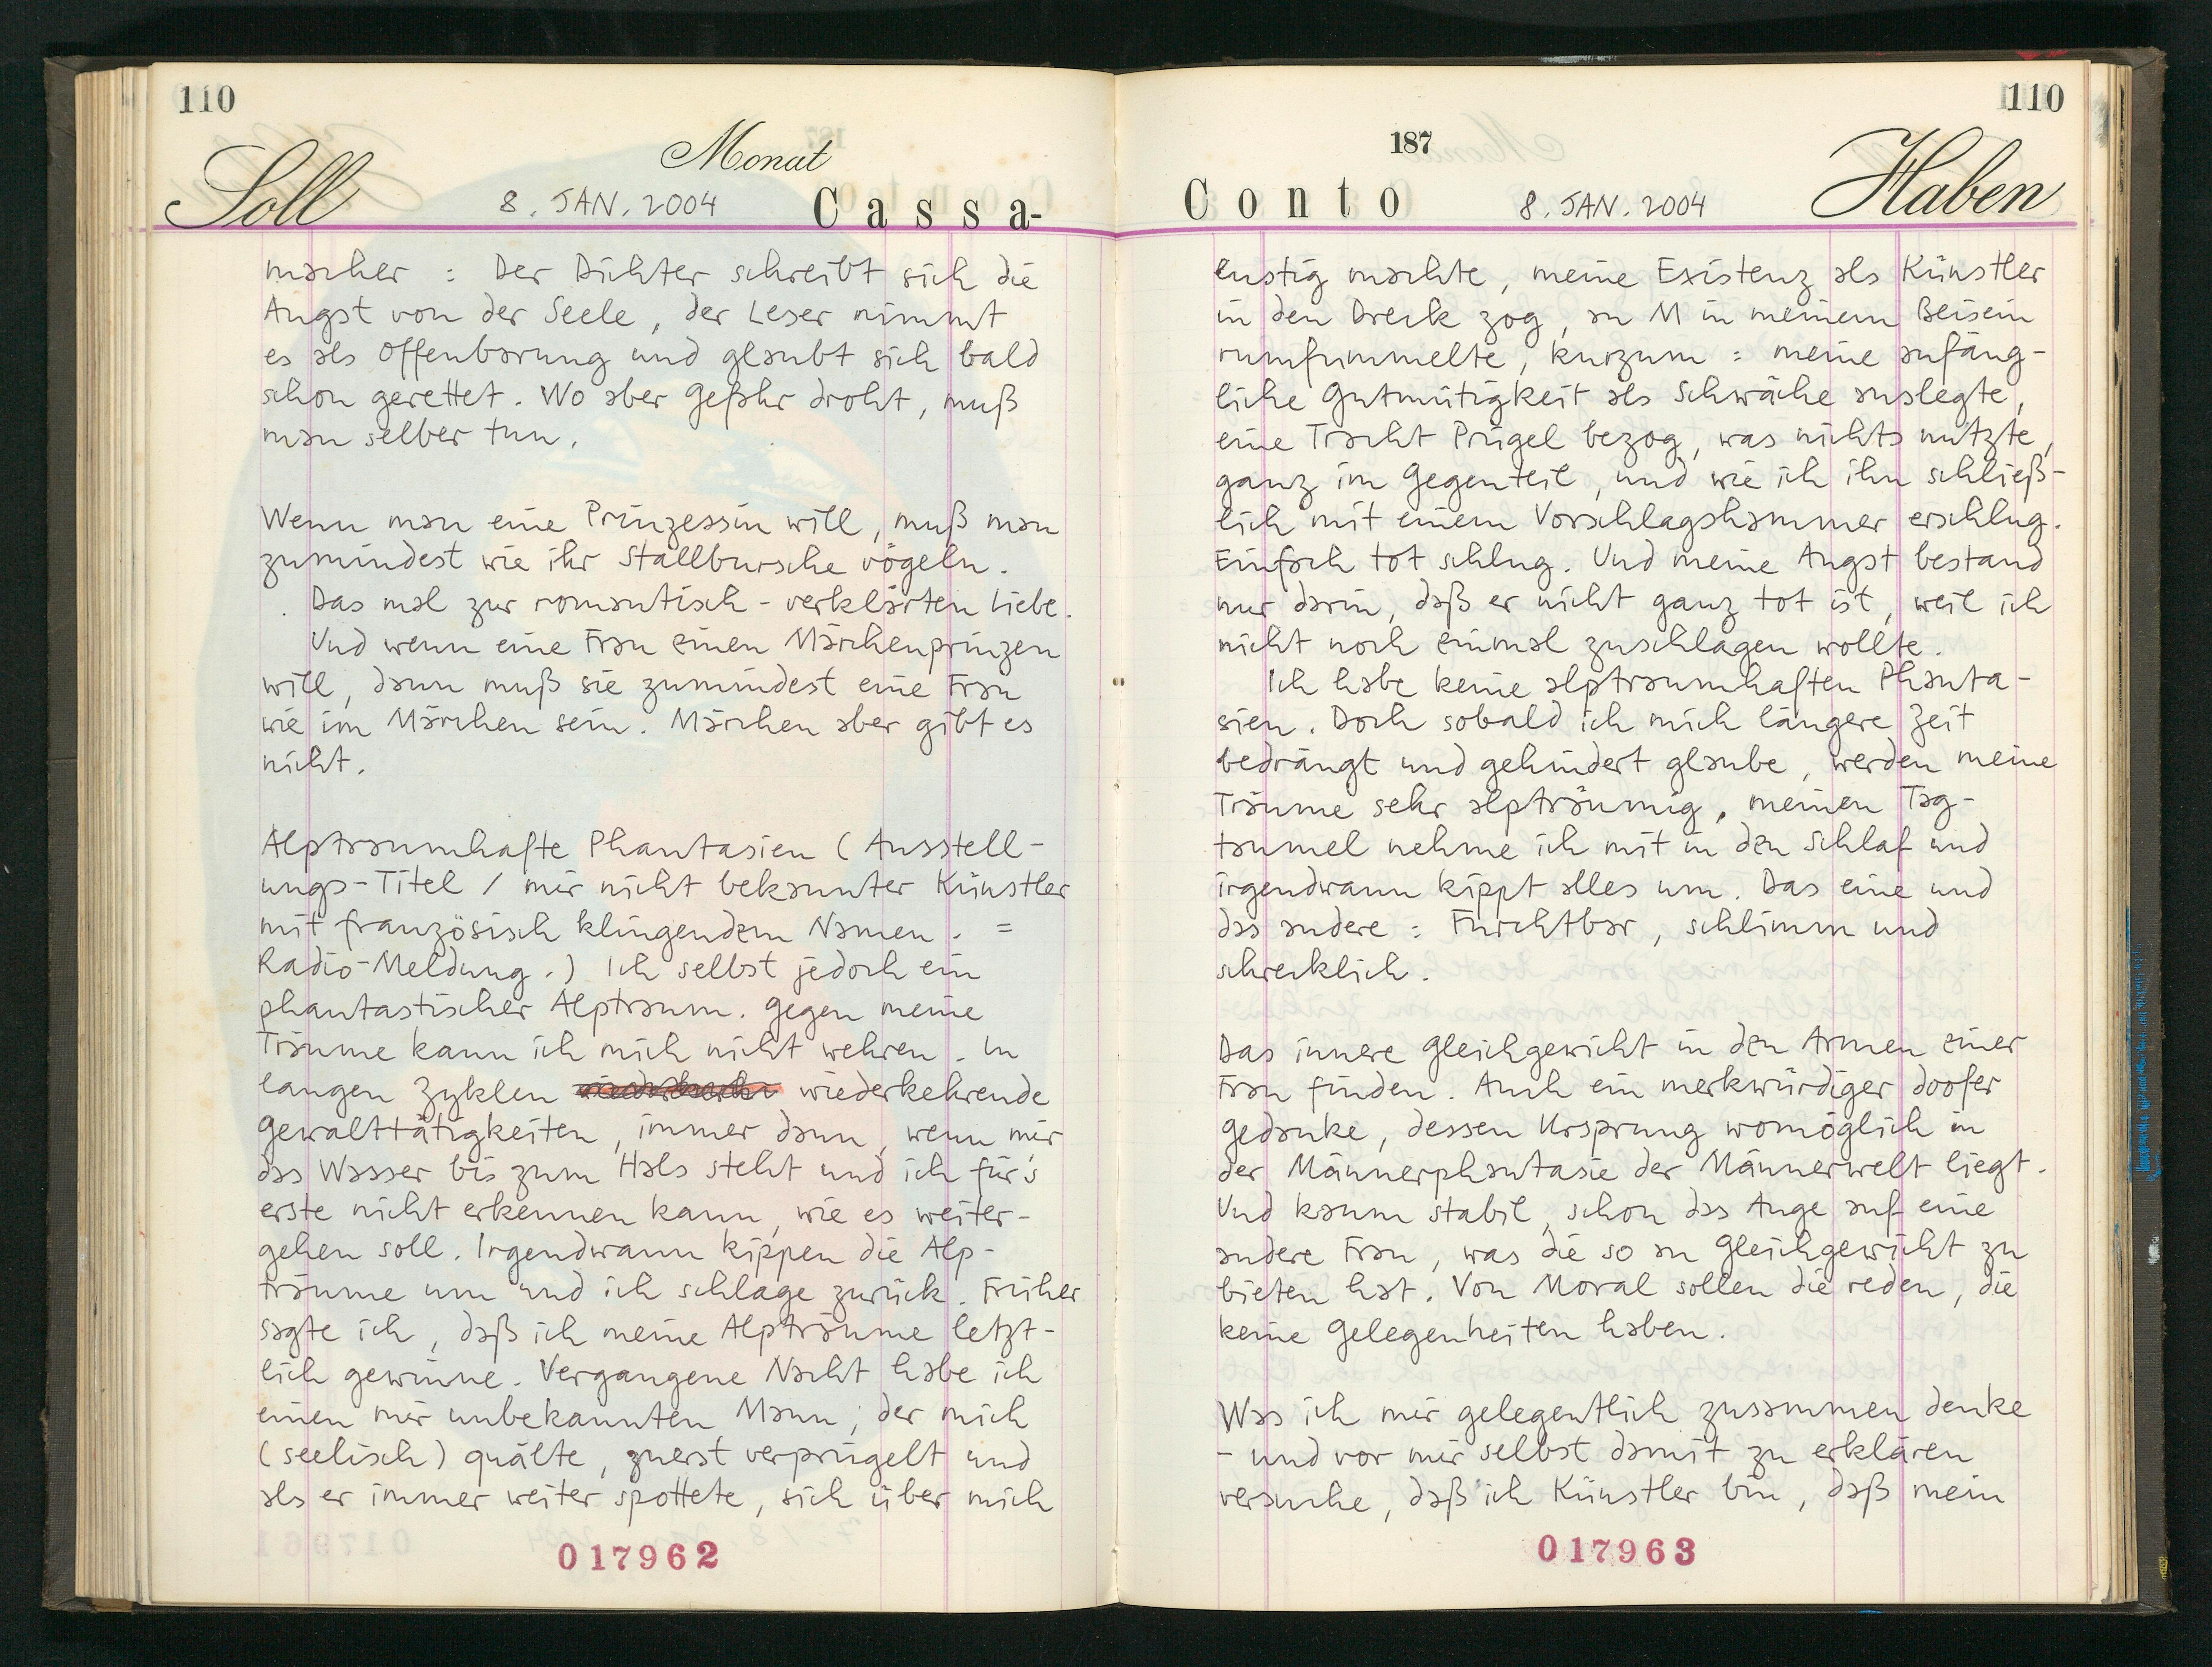 110
Soll
Monat
8. JAN. 2004
Cassa-
macher : Der Dichter schreibt sich die
Angst von der Seele, der Leser nimmt
es als Offenbarung und glaubt sich bald
schon gerettet. Wo aber Gefahr droht, muß
man selber tun.
Wenn man eine Prinzessin will, muß man
zumindest wie ihr Stallbursche vögeln.
. Das mal zur romantisch-verklärten Liebe.
Und wenn eine Frau einen Märchenprinzen
will, dann muß sie zumindest eine Frau
wie im Märchen sein. Märchen aber gibt es
nicht.
Alptraumhafte Phantasien (Ausstell-
ungs-Titel / mir nicht bekannter Künstler
mit französisch klingendem Namen. =
Radio-Meldung.) Ich selbst jedoch ein
phantastischer Alptraum. Gegen meine
Träume kann ich mich nicht wehren. In
langen Zyklen wiederkehrende
Gewalttätigkeiten, immer dann, wenn mir
das Wasser bis zum Hals steht und ich für's
erste nicht erkennen kann, wie es weiter-
gehen soll. Irgendwann kippen die Alp-
träume um und ich schlage zurück. Früher
sagte ich, daß ich meine Alpträume letzt-
lich gewinne. Vergangene Nacht habe ich
einen mir unbekannten Mann, der mich
(seelisch) quälte, zuerst verprügelt und
als er immer weiter spottete, sich über mich
017962
110
187
Conto
8. JAN. 2004
Haben
lustig machte, meine Existenz als Künstler
in den Dreck zog, an M in meinem Beisein
rumfummelte, kurzum : meine anfäng-
liche Gutmütigkeit als Schwäche auslegte,
eine Tracht Prügel bezog, was nichts nützte,
ganz im Gegenteil, und wie ich ihn schließ-
lich mit einem Vorschlagshammer erschlug.
Einfach tot schlug. Und meine Angst bestand
nur darin, daß er nicht ganz tot ist, weil ich
nicht noch einmal zuschlagen wollte.
Ich habe keine alptraumhaften Phanta-
sien. Doch sobald ich mich längere Zeit
bedrängt und gehindert glaube, werden meine
Träume sehr alpträumig, meinen Tag-
taumel nehme ich mit in den Schlaf und
irgendwann kippt alles um. Das eine und
das andere : Furchtbar, schlimm und
schrecklich.
Das innere Gleichgewicht in den Armen einer
Frau finden. Auch ein merkwürdiger doofer
Gedanke, dessen Ursprung womöglich in
der Männerphantasie der Männerwelt liegt.
Und kaum stabil, schon das Auge auf eine
andere Frau, was die so an Gleichgewicht zu
bieten hat. Von Moral sollen die reden, die
keine Gelegenheiten haben.
Was ich mir gelegentlich zusammen denke
- und vor mir selbst damit zu erklären
versuche, daß ich Künstler bin, daß mein
017963